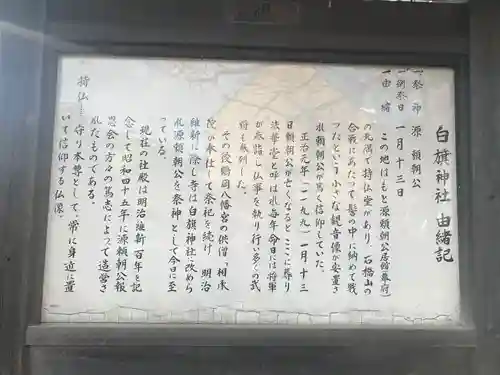 白旗神社 由緒記
一、祭神 源 頼朝公
一、例祭日 一月十三日
一、由緒
この地はもと源頼朝公居館(幕府)
の北隅で持仏堂があり、石橋山の
合戦にあたって髻の中に納めて戦
ったという小さな観音像が安置さ
れ頼朝公が篤く信仰していた。
正治元年(一一九九)一月十三
日頼朝公が亡くなると、ここに葬り
法華堂と呼ばれ毎年命日には将軍
が参詣し仏事を執り行い多くの武
将も参列した。
その後鶴岡八幡宮の供僧「相承
院」が奉仕して祭祀を続け 明治
維新に際し寺は白旗神社に改めら
れ源頼朝公を祭神として今日に至
っている。
現在の社殿は明治維新百年を記
念して昭和四十五年に源頼朝公報
恩会の方々の篤志によって造営さ
れたものである。
持仏 守り本尊として、常に身近に置
いて信仰する仏像。